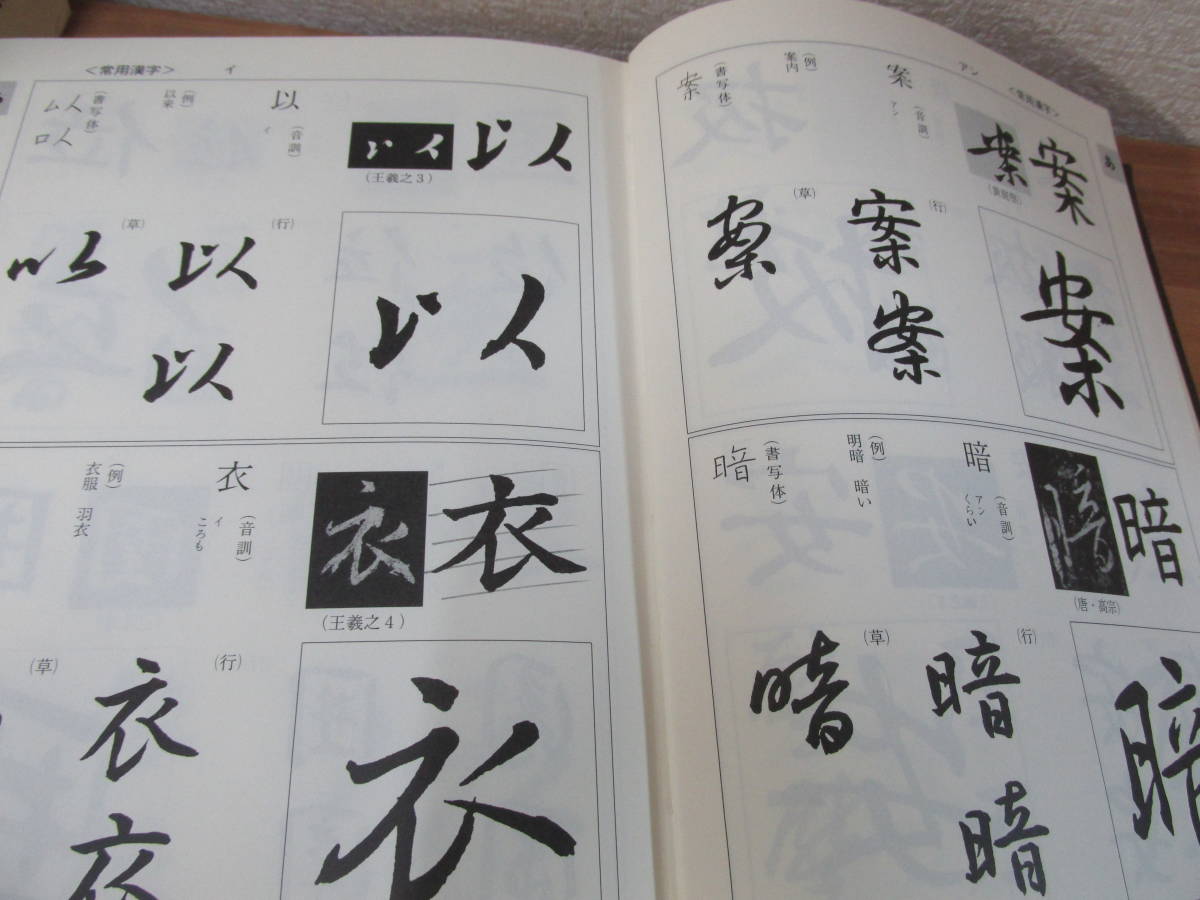 アン
<常用漢字>
あ
案
案
案
(音訓)
アン
(例)
案内
(書写体)
案
案
(行)
案
案
(草)
案
暗
暗
(唐・高宗)
暗
(音訓)
アン
くらい
(例)
明暗 暗い
(書写体)
暗
暗
(行)
暗
暗
(草)
暗
<常用漢字> イ
以
以
(王羲之3)
以
(音訓)
イ
(例)
以来
(書写体)
以
(行)
以
以
(草)
以
衣
衣
(王羲之4)
衣
(音訓)
イ
ころも
(例)
衣服 羽衣
衣
(行)
衣
衣
(草)